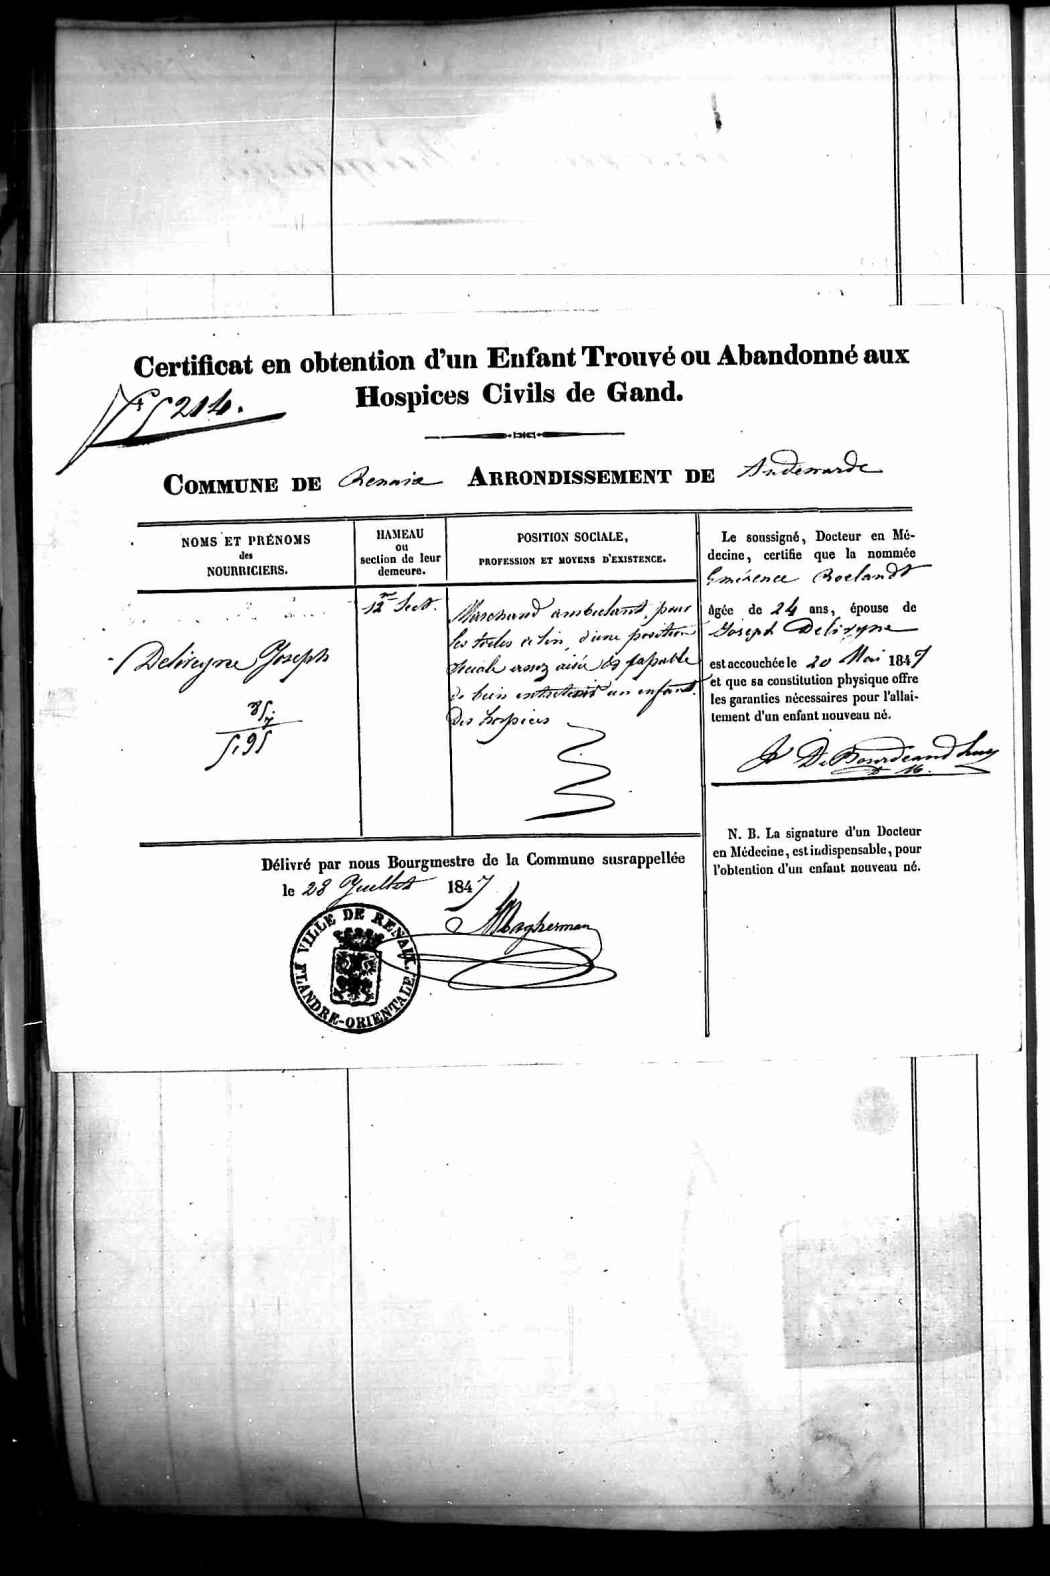 Certificat en obtention d'un Enfant Trouvé ou Abandonné aux
Hospices Civils de Gand.
5214.
COMMUNE DE Renaix ARRONDISSEMENT DE Audenarde
NOMS ET PRÉNOMS
des
NOURRICIERS.
Deliregne Joseph
HAMEAU
ou
section de leur
demeure.
12me Sect.
POSITION SOCIALE,
PROFESSION ET MOYENS D'EXISTENCE.
Marchand ambulant pour
les toiles de lin, d'une position
sociale assez aisée et capable
de bien entretenir un enfant
des hospices
Le soussigné, Docteur en Mé-
decine, certifie que la nommée
Emérence Roelandt
âgée de 24 ans, épouse de
Joseph Deliregne
est accouchée le 20 Mai 1847
et que sa constitution physique offre
les garanties nécessaires pour l'allai-
tement d'un enfant nouveau né.
N. B. La signature d'un Docteur
en Médecine, est indispensable, pour
l'obtention d'un enfant nouveau né.
Délivré par nous Bourgmestre de la Commune susrappellée
le 28 Juillet 1847
Magherman
VILLE DE RENAIX
FLANDRE-ORIENTALE